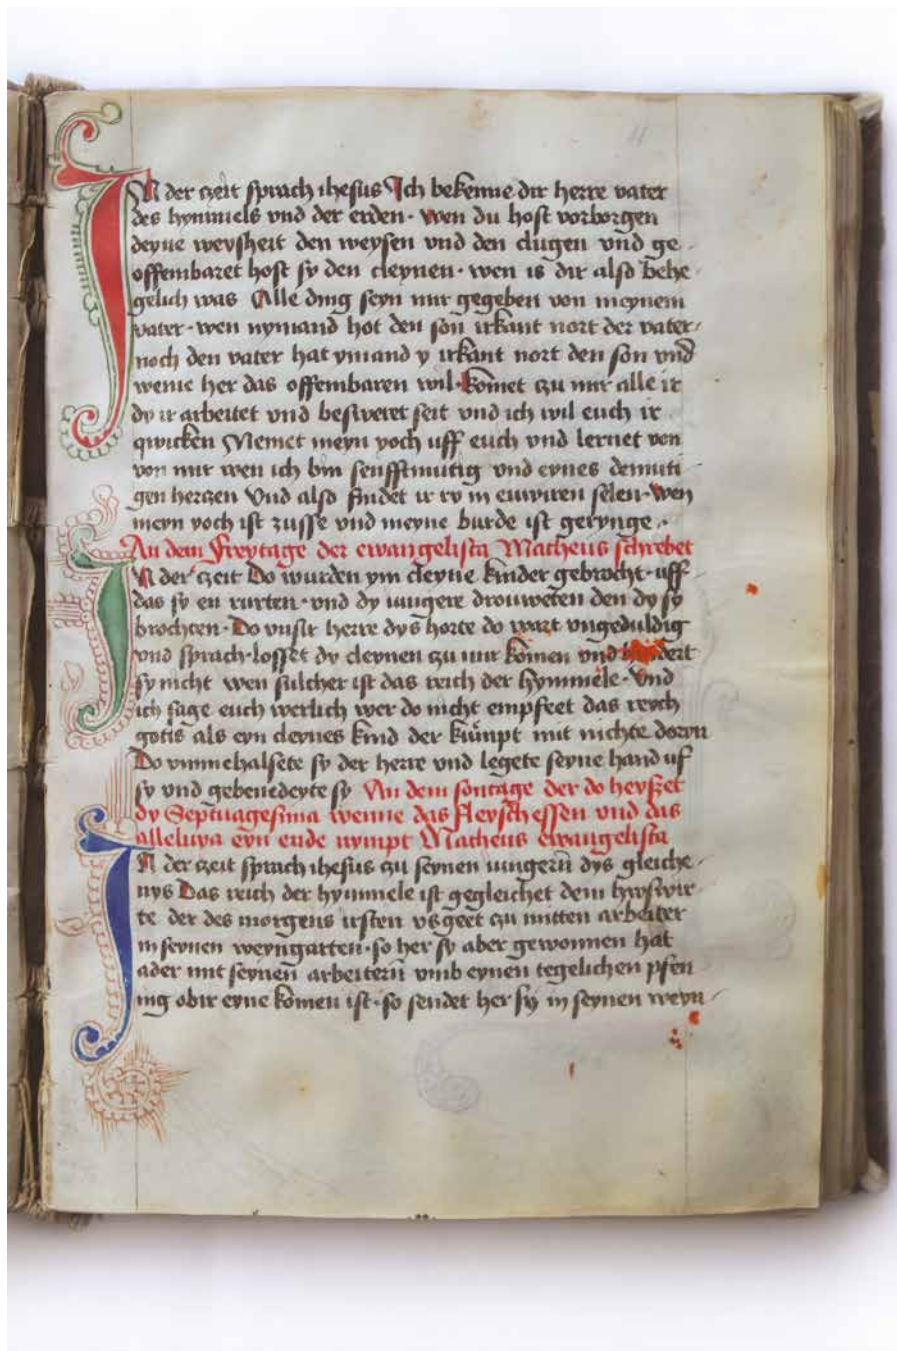 IN der czeit sprach ihesus Ich bekenne dir herre vater
des hymmels vnd der erden · wen du host vorborgen
deyne weysheit den weysen vnd den clugen vnd ge
offembaret host sy den cleynen · wen is dir also behe
gelich was Alle ding seyn mir gegeben von meynem
vater · wen nymand hot den son irkant nort der vater
noch den vater hat ymand y irkant nort den son vnd
weme her das offembaren wil · komet zu mir alle ir
dy ir arbeitet vnd besweret seit vnd ich wil euch ir
qwicken Nemet meyn yoch uff euch vnd lernet von
von mir wen ich bin senfftmutig vnd eynes demuti
gen herczen Vnd also findet ir rv in euwiren selen · wen
meyn yoch ist zusse vnd meyne burde ist gerynge ·
An dem Freytage der ewangelista Matheus schrebet
IN der czeit Do wurden ym cleyne kinder gebrocht · uff
das sy en rurten · vnd dy iungere drouweten den dy sy
brochten · Do vnsir herre dys horte do wart vngeduldig
vnd sprach · losset dy cleynen zu mir komen vnd
sy nicht wen sulcher ist das reich der hymmele · Vnd
ich sage euch werlich wer do nicht empfeet das reych
gotis als eyn cleynes kind der kumpt mit nichte doryn
Do vmmehalsete sy der herre vnd legete seyne hand uf
sy vnd gebenedeyte sy An dem sontage der do heyset
dy Septuagesima wenne das fleysch essen vnd das
alleluya eyn ende nympt Matheus ewangelista
IN der czeit sprach ihesus zu seynen iungern dys gleiche
nys Das reich der hymmele ist gegleichet dem hwswir
te der des morgens irsten vsgeet zu mitten arbeiter
in seynen weyngarten · so her sy aber gewonnen hat
ader mit seynen arbeitern vmb eynen tegelichen pfen
ing obir eyne komen ist · so sendet her sy in seynen weyn